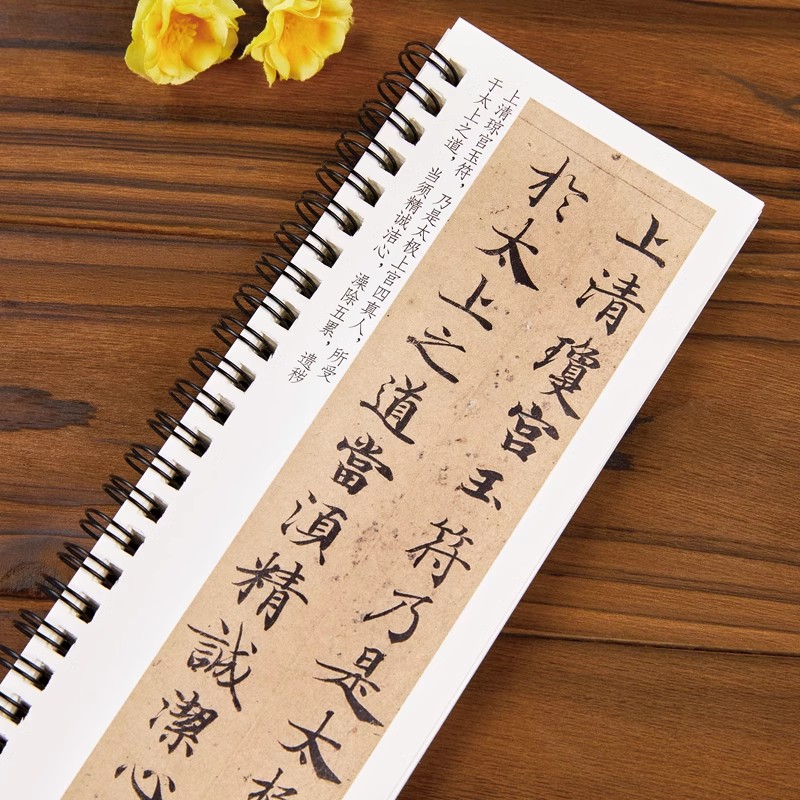 上清琼宫玉符，乃是太极上宫四真人，所受
于太上之道，当须精诚洁心，澡除五累，遗秽
上清瓊宫玉符乃是太極
於太上之道當湏精誠潔心